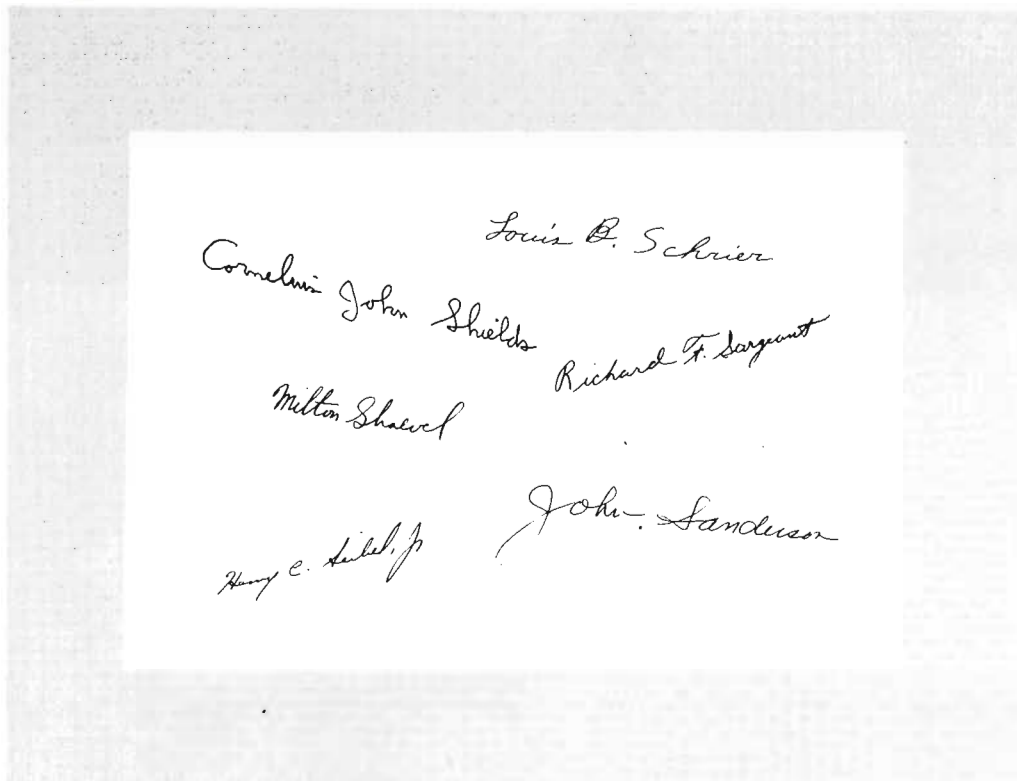 Louis B. Schrier
Cornelius John Shields
Richard F. Sargeant
Milton Shaevel
John Sanderson
Harry C. Seibel, Jr